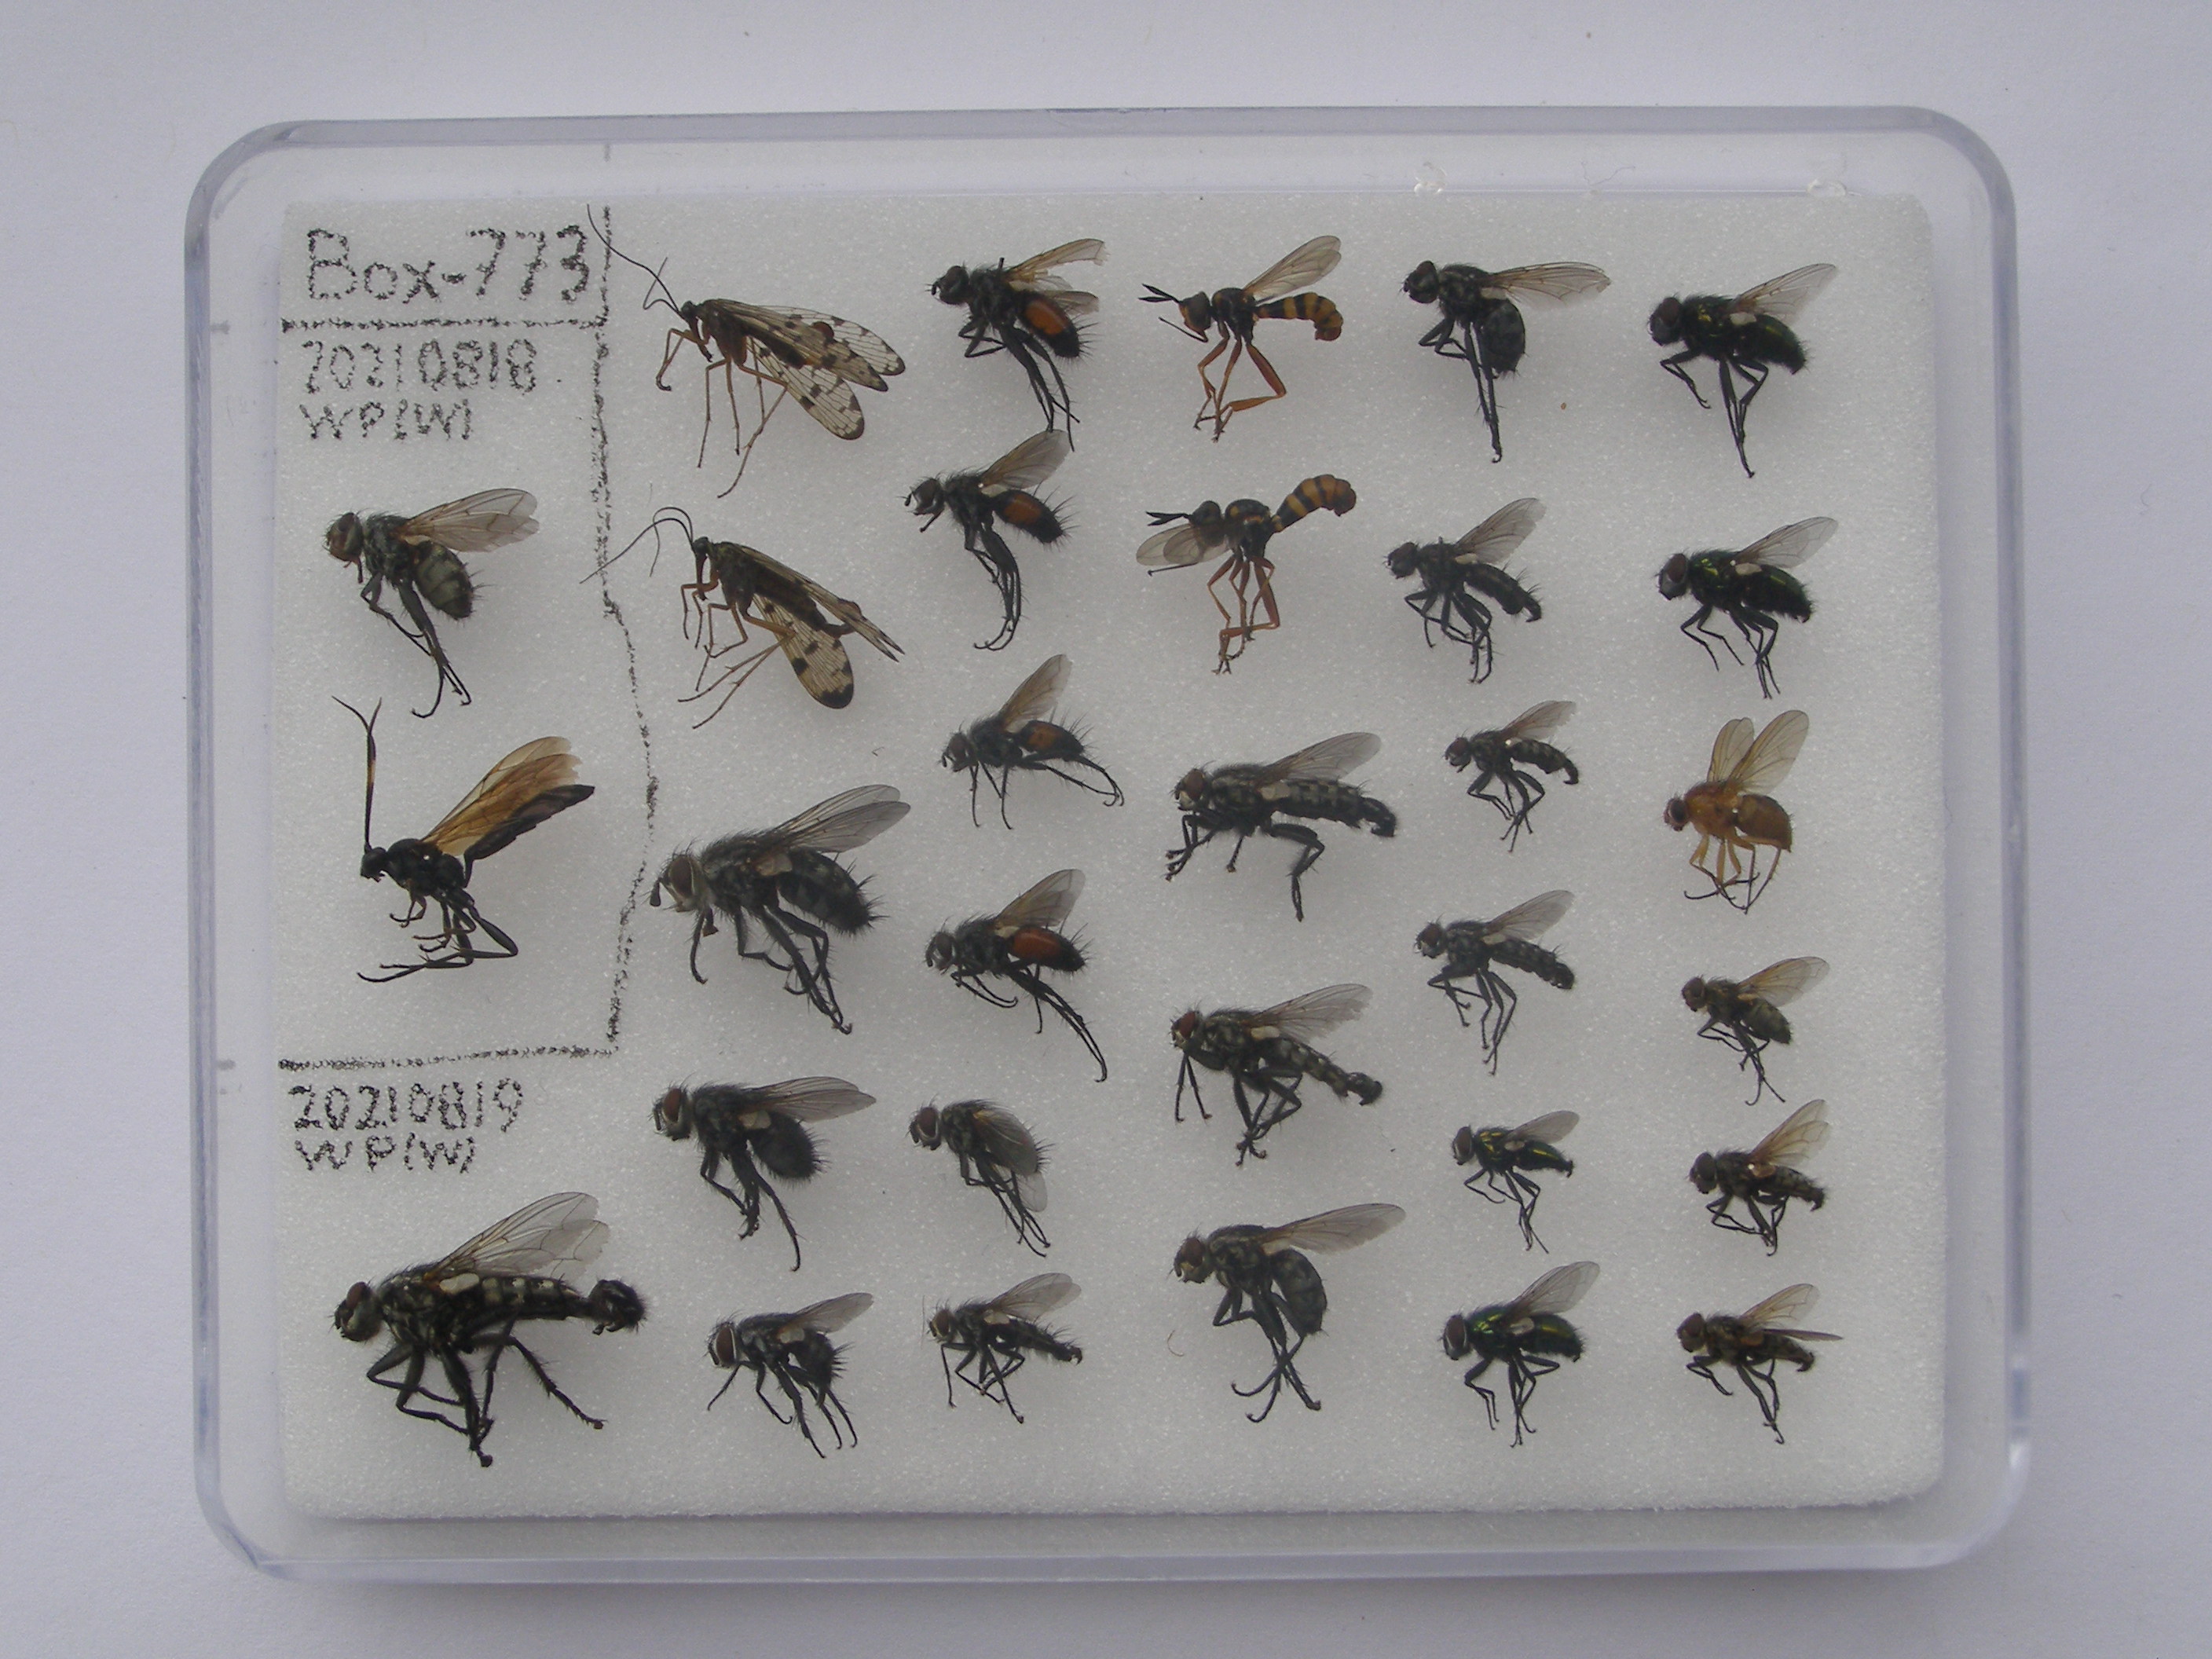 Box-773
20210818
WP(W)
20210819
WP(W)